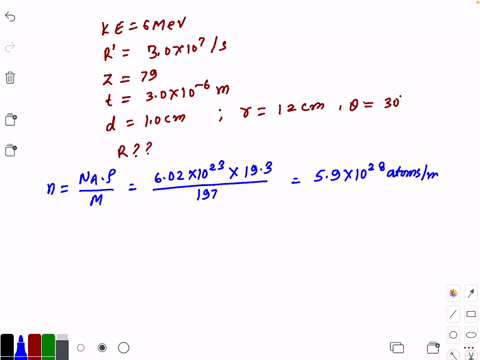 KE = 6 MeV
R' = 3.0 × 10⁷ /s
Z = 79
t = 3.0 × 10⁻⁶ m
d = 1.0 cm ; r = 12 cm , θ = 30°
R ??
n = NA.ρ / M = 6.02 × 10²³ × 19.3 / 197 = 5.9 × 10²⁸ atoms/m